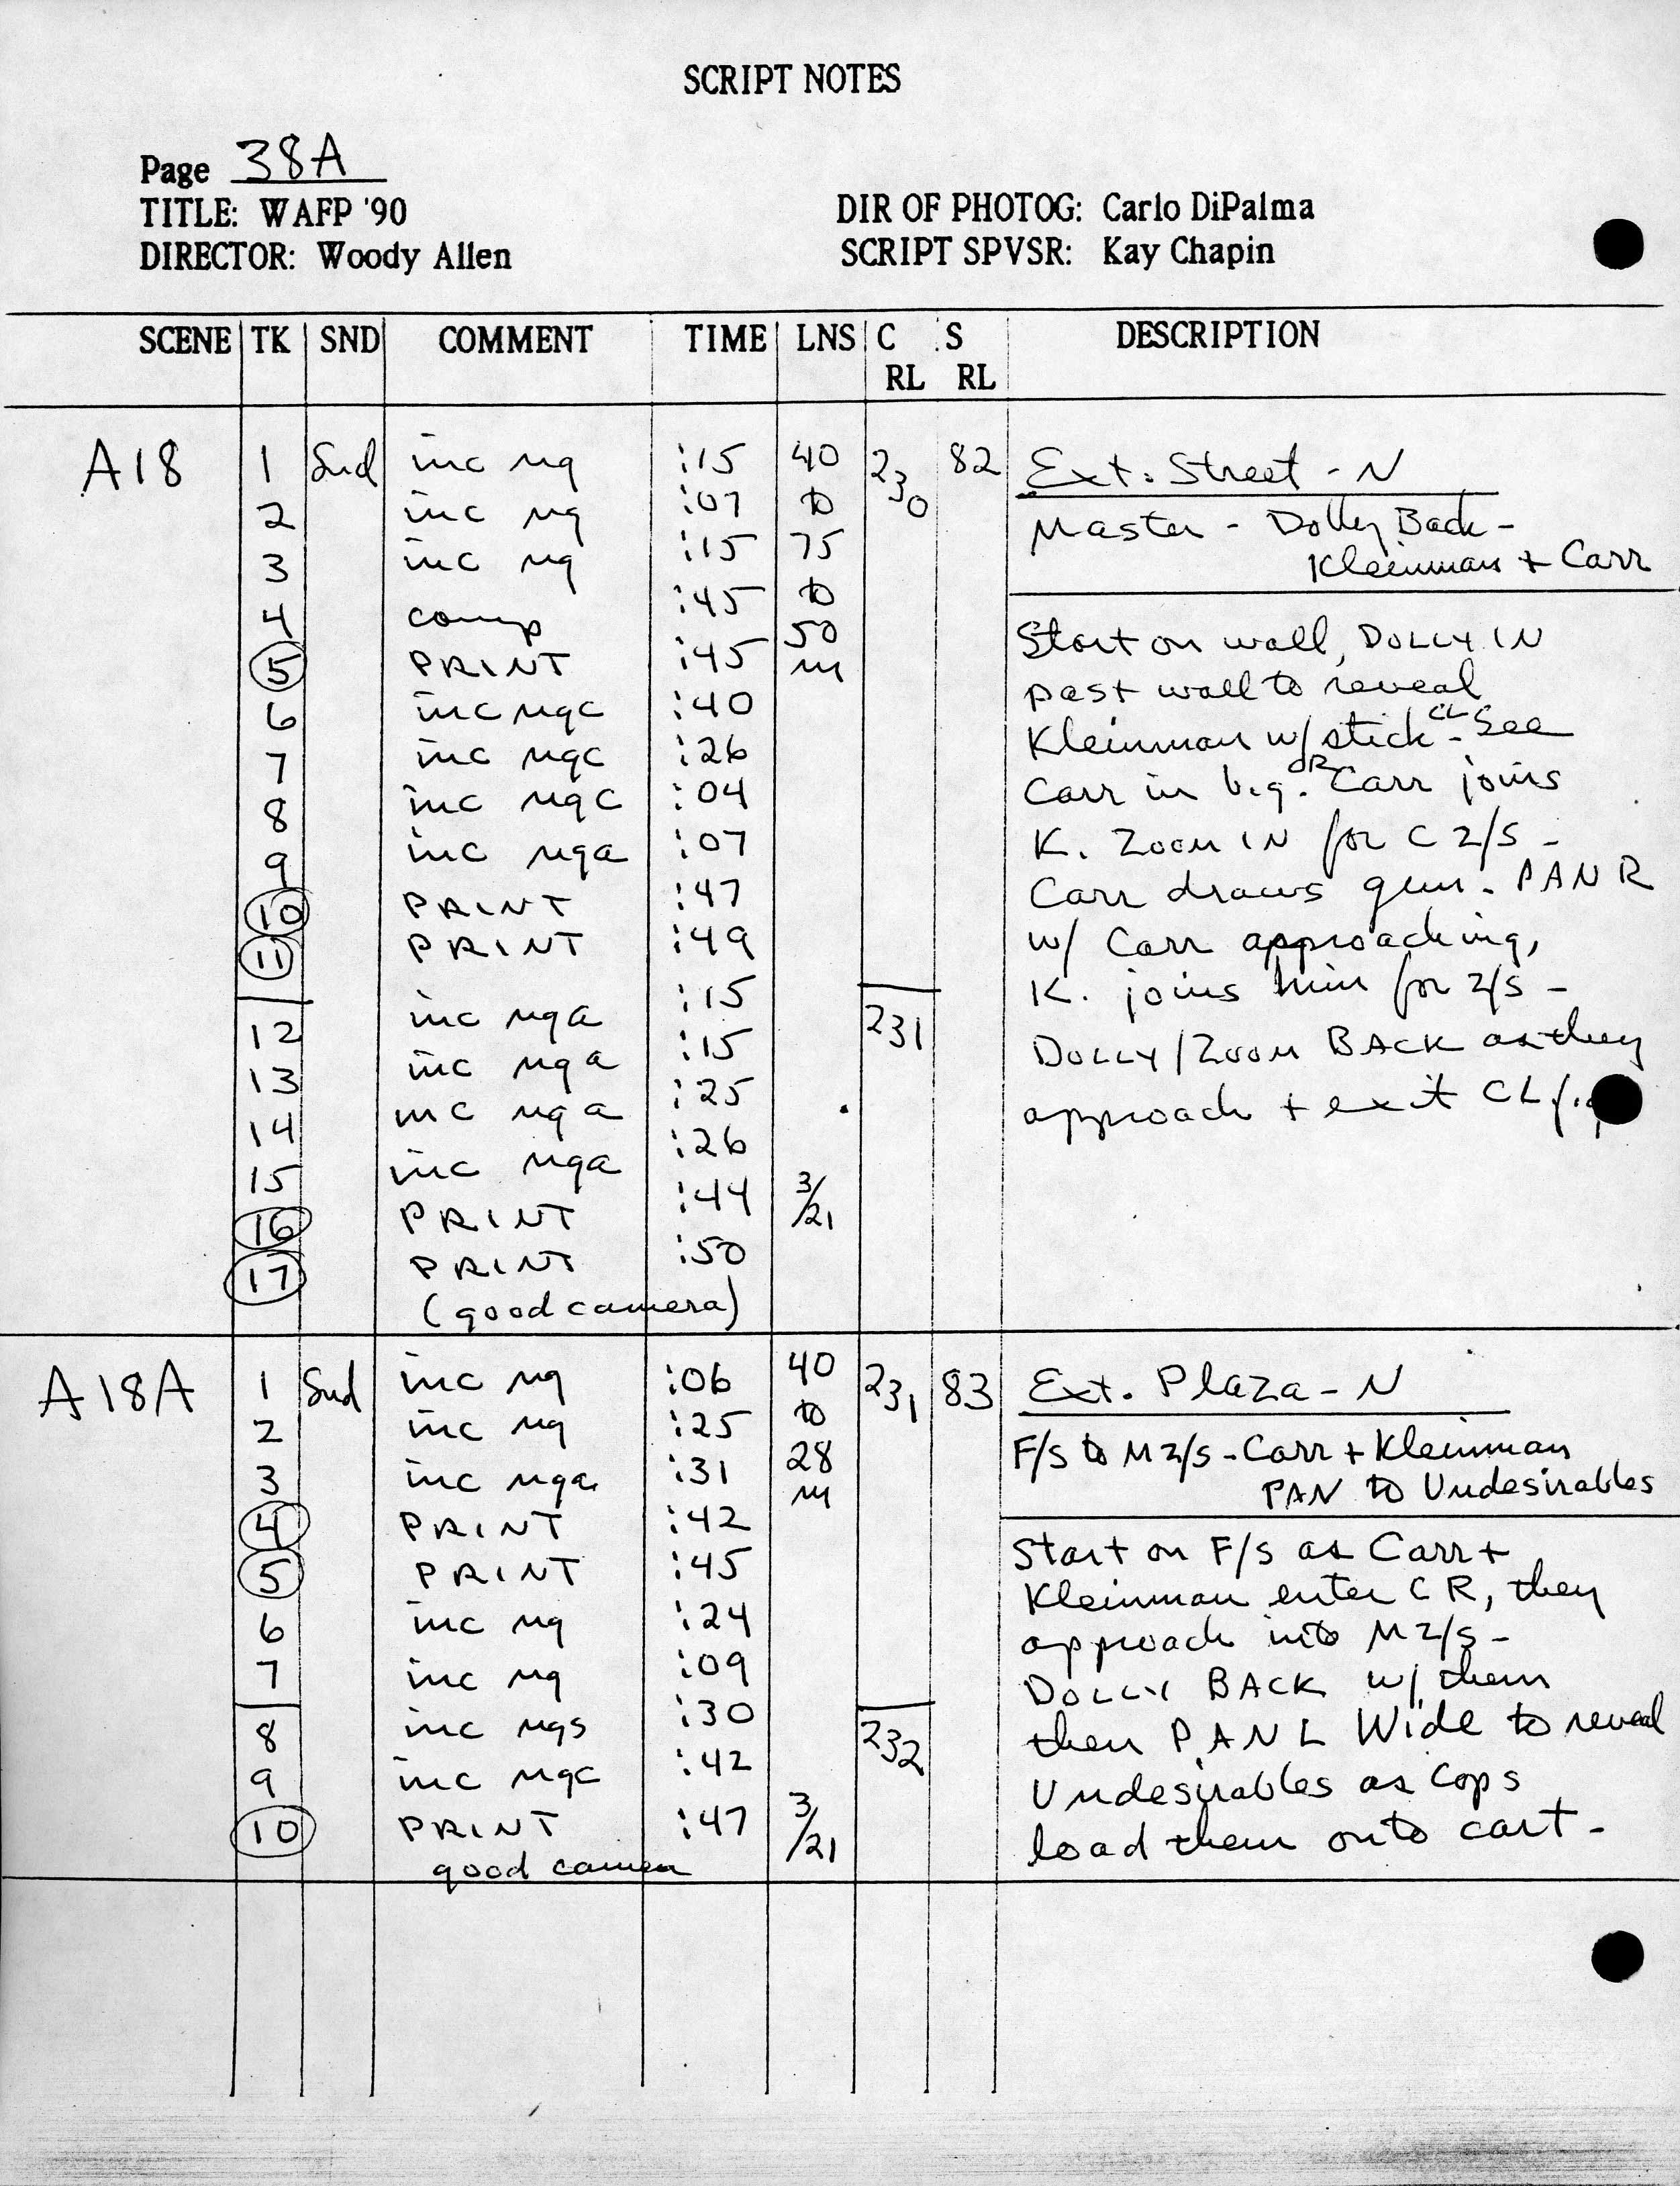 SCRIPT NOTES
Page 38A
TITLE: WAFP '90
DIRECTOR: Woody Allen
DIR OF PHOTOG: Carlo DiPalma
SCRIPT SPVSR: Kay Chapin
SCENE TK SND COMMENT TIME LNS C RL S RL DESCRIPTION
A18 1 Snd inc ng :15 40 230 82 Ext. Street - N
2 inc ng :07 to Master - Dolly Back -
3 inc ng :15 75 Kleinman + Carr
4 comp :45 to
5 PRINT :45 50 m Start on wall, DOLLY IN
6 inc ngc :40 past wall to reveal
7 inc ngc :26 Kleinman w/ stick CL - See
8 inc ngc :04 Carr in b.g. CR Carr joins
9 inc nga :07 K. ZOOM IN for C 2/S -
10 PRINT :47 Carr draws gun - PAN R
11 PRINT :49 w/ Carr approaching,
12 inc nga :15 231 K. joins him for 2/S -
13 inc nga :15 DOLLY/ZOOM BACK as they
14 inc nga :25 approach + exit CL f.
15 inc nga :26
16 PRINT :44 3/21
17 PRINT :50
(good camera)
A18A 1 Snd inc ng :06 40 231 83 Ext. Plaza - N
2 inc ng :25 to F/S to M2/S - Carr + Kleinman
3 inc nga :31 28 m PAN to Undesirables
4 PRINT :42 Start on F/S as Carr +
5 PRINT :45 Kleinman enter CR, they
6 inc ng :24 approach into M2/S -
7 inc ng :09 DOLLY BACK w/ them
8 inc ngs :30 232 then PAN L Wide to reveal
9 inc ngc :42 Undesirables as Cops
10 PRINT :47 3/21 load them onto cart -
good camera